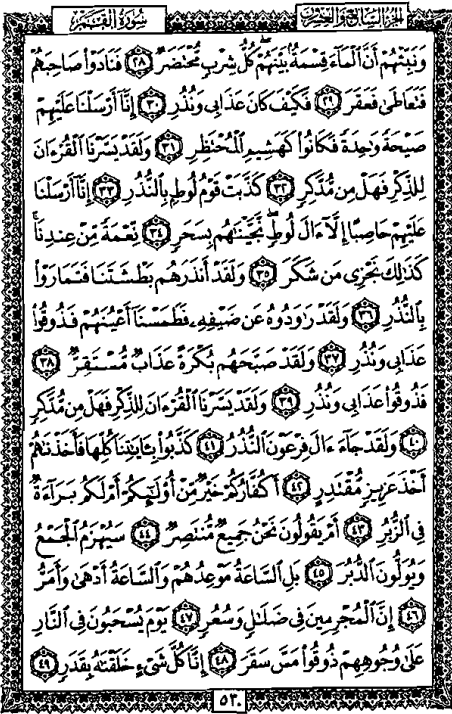 الجزء السابع والعشرون سورة القمر
وَنَبِّئْهُمْ أَنَّ الْمَاءَ قِسْمَةٌ بَيْنَهُمْ كُلُّ شِرْبٍ مُّحْتَضَرٌ ٢٨ فَنَادَوْا صَاحِبَهُمْ
فَتَعَاطَىٰ فَعَقَرَ ٢٩ فَكَيْفَ كَانَ عَذَابِي وَنُذُرِ ٣٠ إِنَّا أَرْسَلْنَا عَلَيْهِمْ
صَيْحَةً وَٰحِدَةً فَكَانُوا كَهَشِيمِ الْمُحْتَظِرِ ٣١ وَلَقَدْ يَسَّرْنَا الْقُرْءَانَ
لِلذِّكْرِ فَهَلْ مِن مُّدَّكِرٍ ٣٢ كَذَّبَتْ قَوْمُ لُوطٍ بِالنُّذُرِ ٣٣ إِنَّا أَرْسَلْنَا
عَلَيْهِمْ حَاصِبًا إِلَّا ءَالَ لُوطٍ نَّجَّيْنَٰهُم بِسَحَرٍ ٣٤ نِّعْمَةً مِّنْ عِندِنَا
كَذَٰلِكَ نَجْزِي مَن شَكَرَ ٣٥ وَلَقَدْ أَنذَرَهُم بَطْشَتَنَا فَتَمَارَوْا
بِالنُّذُرِ ٣٦ وَلَقَدْ رَٰوَدُوهُ عَن ضَيْفِهِ فَطَمَسْنَا أَعْيُنَهُمْ فَذُوقُوا
عَذَابِي وَنُذُرِ ٣٧ وَلَقَدْ صَبَّحَهُم بُكْرَةً عَذَابٌ مُّسْتَقِرٌّ ٣٨
فَذُوقُوا عَذَابِي وَنُذُرِ ٣٩ وَلَقَدْ يَسَّرْنَا الْقُرْءَانَ لِلذِّكْرِ فَهَلْ مِن مُّدَّكِرٍ
٤٠ وَلَقَدْ جَاءَ ءَالَ فِرْعَوْنَ النُّذُرُ ٤١ كَذَّبُوا بِـَٔايَٰتِنَا كُلِّهَا فَأَخَذْنَٰهُمْ
أَخْذَ عَزِيزٍ مُّقْتَدِرٍ ٤٢ أَكُفَّارُكُمْ خَيْرٌ مِّنْ أُو۟لَٰئِكُمْ أَمْ لَكُم بَرَاءَةٌ
فِي الزُّبُرِ ٤٣ أَمْ يَقُولُونَ نَحْنُ جَمِيعٌ مُّنتَصِرٌ ٤٤ سَيُهْزَمُ الْجَمْعُ
وَيُوَلُّونَ الدُّبُرَ ٤٥ بَلِ السَّاعَةُ مَوْعِدُهُمْ وَالسَّاعَةُ أَدْهَىٰ وَأَمَرُّ
٤٦ إِنَّ الْمُجْرِمِينَ فِي ضَلَٰلٍ وَسُعُرٍ ٤٧ يَوْمَ يُسْحَبُونَ فِي النَّارِ
عَلَىٰ وُجُوهِهِمْ ذُوقُوا مَسَّ سَقَرَ ٤٨ إِنَّا كُلَّ شَيْءٍ خَلَقْنَٰهُ بِقَدَرٍ ٤٩
٥٣٠